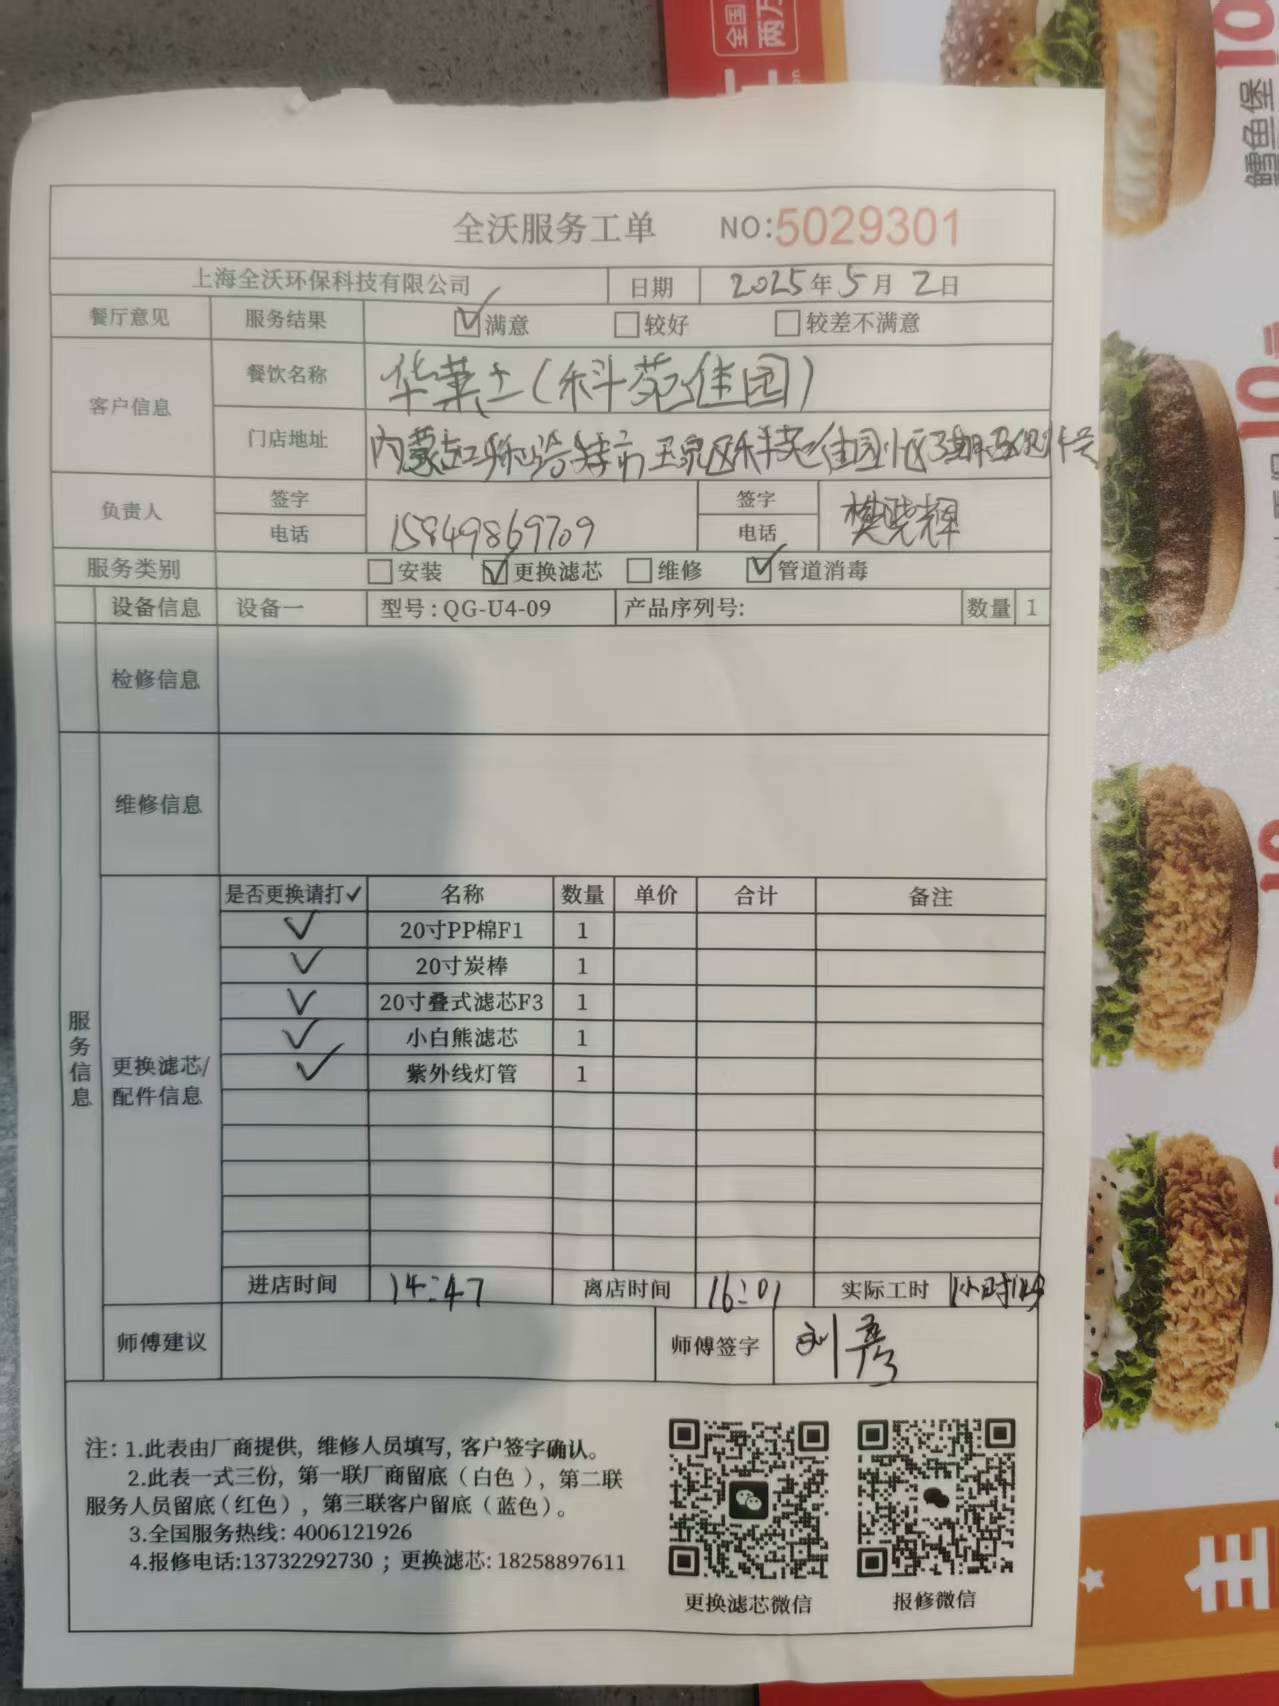 全国
两万
鳕鱼堡
10
全沃服务工单 NO:5029301
上海全沃环保科技有限公司 日期 2025年5月2日
餐厅意见 服务结果 ☑满意 □较好 □较差不满意
客户信息 餐饮名称 华莱士(科苑佳园)
门店地址 内蒙古呼和浩特市玉泉区科苑佳园小区3期西侧
负责人 签字 签字 樊晓辉
电话 15849869709 电话
服务类别 □安装 ☑更换滤芯 □维修 ☑管道消毒
设备信息 设备一 型号:QG-U4-09 产品序列号: 数量 1
检修信息
维修信息
服务信息
更换滤芯/配件信息
是否更换请打✓ 名称 数量 单价 合计 备注
✓ 20寸PP棉F1 1
✓ 20寸炭棒 1
✓ 20寸叠式滤芯F3 1
✓ 小白熊滤芯 1
✓ 紫外线灯管 1
进店时间 14:47 离店时间 16:01 实际工时 1小时14分
师傅建议 师傅签字 刘彦
注:1.此表由厂商提供,维修人员填写,客户签字确认。
2.此表一式三份,第一联厂商留底(白色),第二联
服务人员留底(红色),第三联客户留底(蓝色)。
3.全国服务热线:4006121926
4.报修电话:13732292730;更换滤芯:18258897611
更换滤芯微信 报修微信
10
主